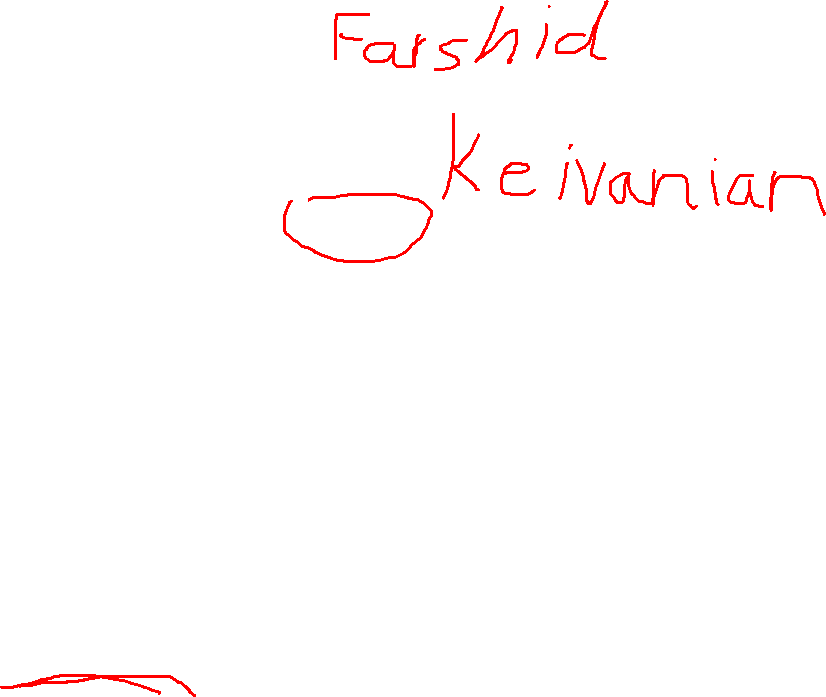 Farshid
Keivanian